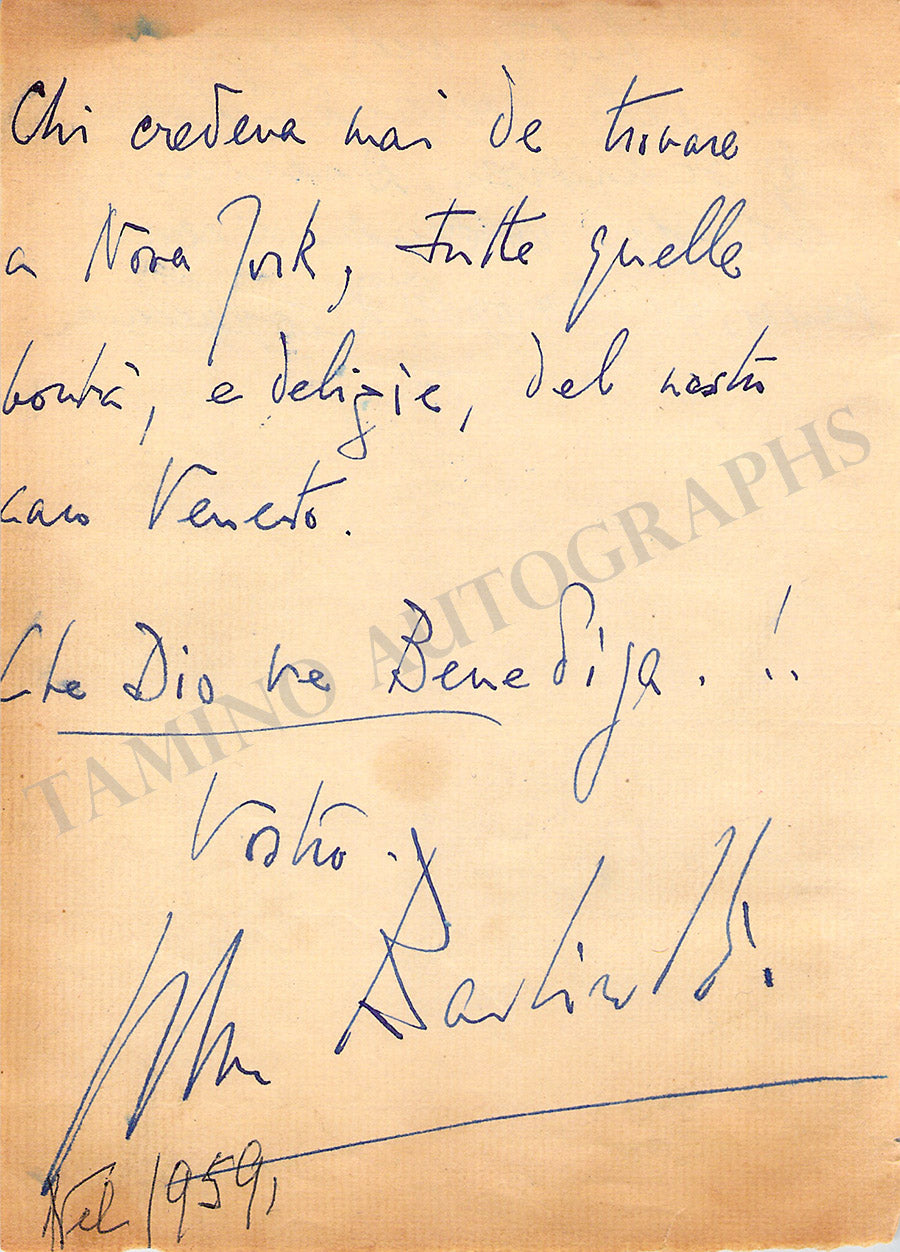 Chi credeva mai de trovare
a Nova York, tutte quelle
bontà, e deligie, del nostro
caro Veneto.
Che Dio ve Benediga. !..
Vostro.
Nel 1959,
TAMINO AUTOGRAPHS